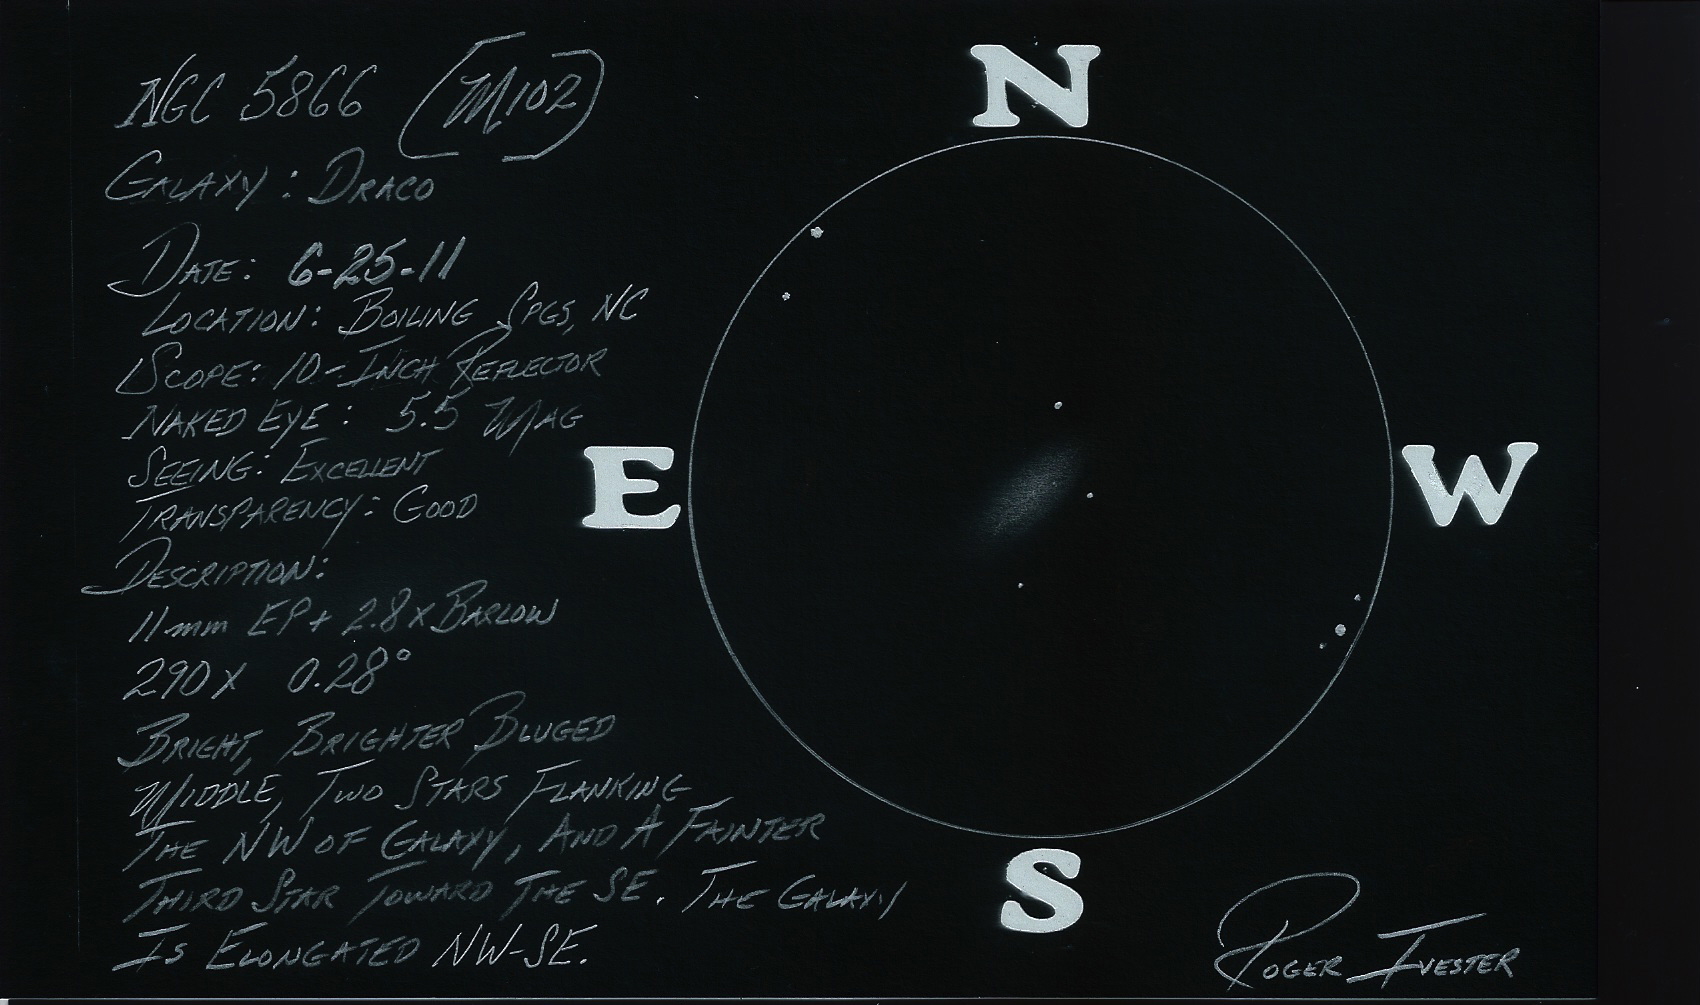 NGC 5866 (M102)
GALAXY: DRACO
DATE: 6-25-11
LOCATION: BOILING SPGS, NC
SCOPE: 10-INCH REFLECTOR
NAKED EYE: 5.5 MAG
SEEING: EXCELLENT
TRANSPARENCY: GOOD
DESCRIPTION:
11mm EP + 2.8x BARLOW
290X 0.28°
BRIGHT, BRIGHTER BLUGED
MIDDLE, TWO STARS FLANKING
THE NW OF GALAXY, AND A FAINTER
THIRD STAR TOWARD THE SE. THE GALAXY
IS ELONGATED NW-SE.
N
E
W
S
ROGER IVESTER